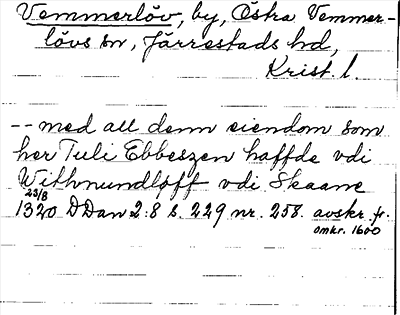 Vemmerlöv, by, Östra Vemmer-
lövs sn, Järrestads hd,
Krist. l.
-- med all denn eiendom som
her Tuli Ebbeszen haffde vdi
Withnundloff vdi Skaane
23/8
1320 DDan 2:8 s. 229 nr. 258. avskr. fr.
omkr. 1600